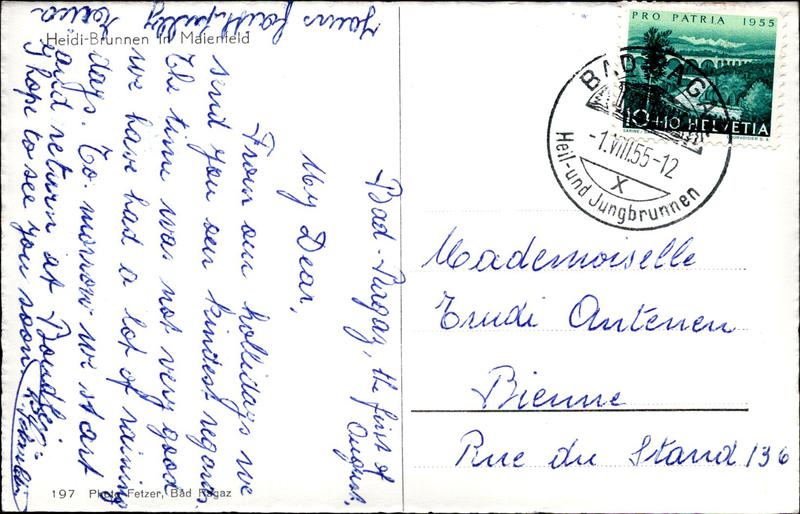 Heidi-Brunnen in Maienfeld
Bad-Ragaz, the first of
August.
My Dear,
From our hollidays we
send you our kindest regards.
The time was not very good
we have had a lot of raining
days. To. morrow we start
and return at
I hope to see you soon.
Yours faithfully
197 Photo Fetzer, Bad Ragaz
PRO PATRIA 1955
10+10 HELVETIA
BAD RAGAZ
-1.VIII.55-12
X
Heil-und Jungbrunnen
Mademoiselle
Trudi Antenen
Bienne
Rue du Stand 136